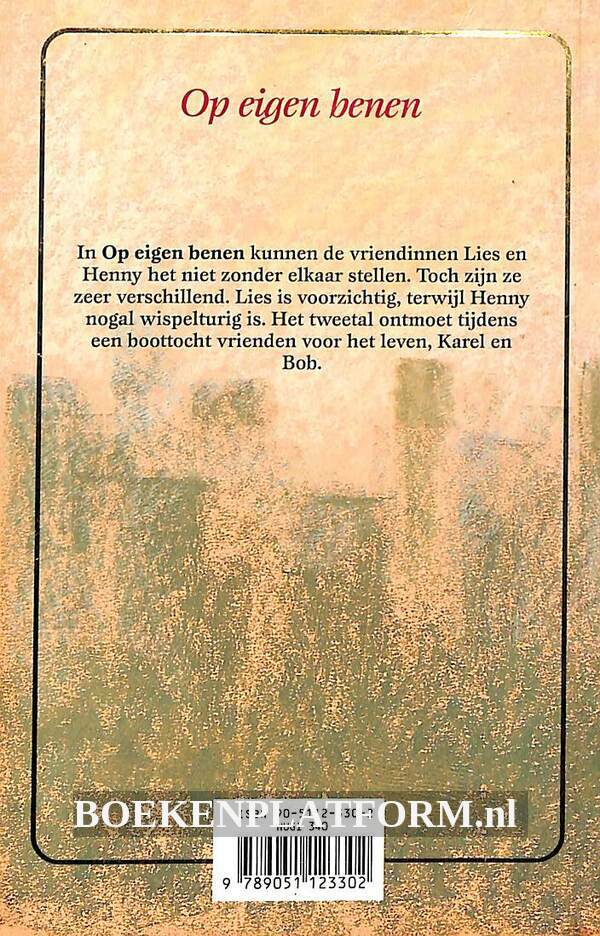 Op eigen benen
In Op eigen benen kunnen de vriendinnen Lies en
Henny het niet zonder elkaar stellen. Toch zijn ze
zeer verschillend. Lies is voorzichtig, terwijl Henny
nogal wispelturig is. Het tweetal ontmoet tijdens
een boottocht vrienden voor het leven, Karel en
Bob.
BOEKENPLATFORM.nl
NUGI 340
9 789051 123302